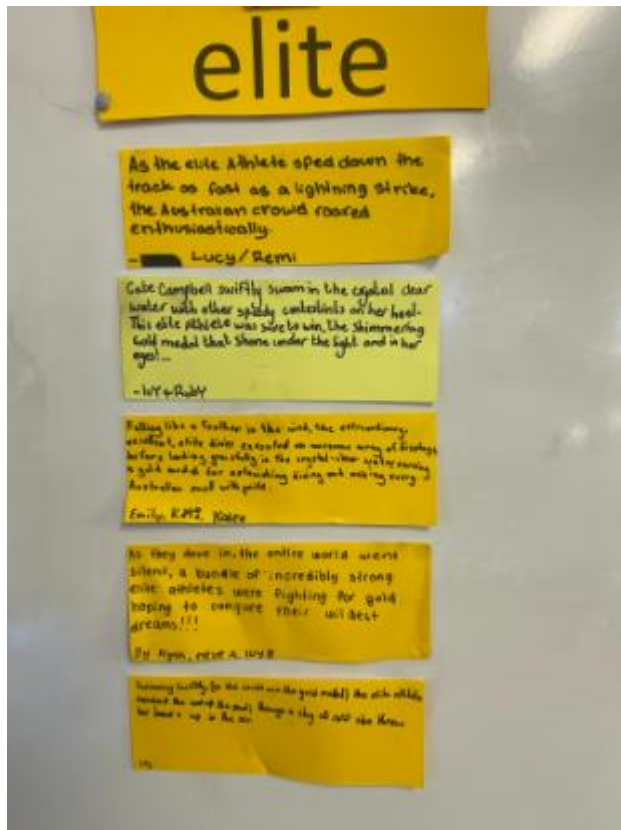 elite
As the elite Athlete sped down the
track as fast as a lightning strike,
the Australian crowd roared
enthusiastically.
- Lucy/Remi
Cate Campbell swiftly swam in the crystal clear
water with other speedy contestints on her heel.
This elite Athlete was sure to win, the shimmering
Gold medal that shone under the light and in her
eyes!...
- IVY & RubY
Falling like a feather in the wind, the extraordinary,
excellent, elite diver executed an array of
before landing gracefully in the crystal-clear water
a gold medal for astounding diving and making every
Australian with pride.
Emily, Karen
As they dove in, the entire world went
silent, a bundle of incredibly strong
elite athletes were fighting for gold
hoping to conqure their wildest
dreams!!!
By
Swimming swiftly for the gold medal, the elite athlete
the end of the
her hand up in the air.